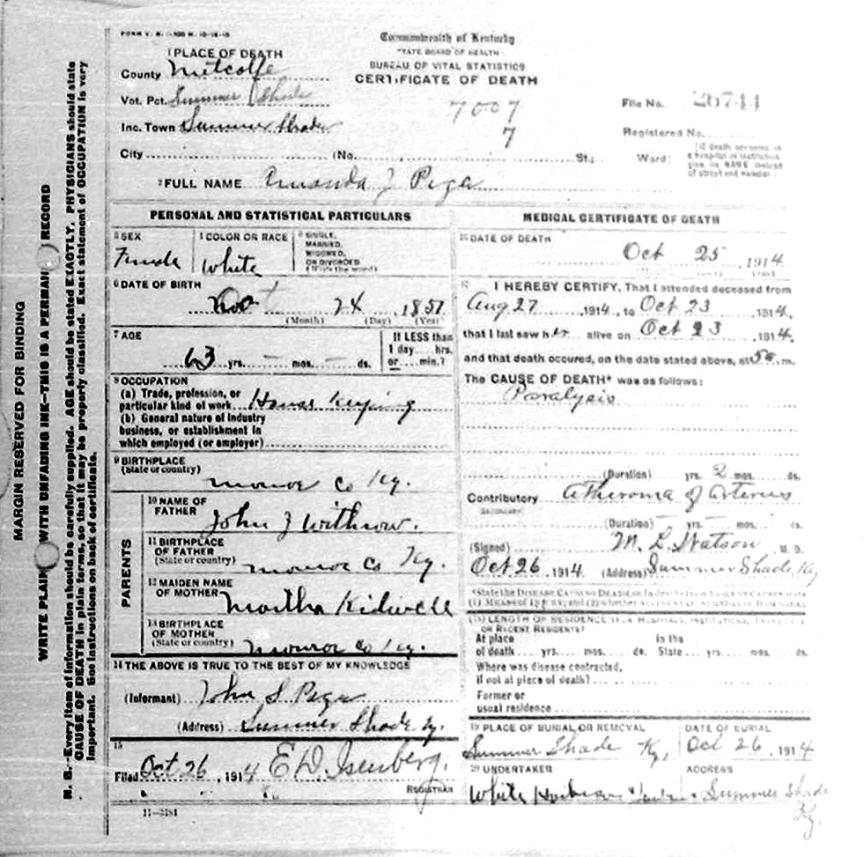 FORM V. S. 1-100 M. 10-16-13
Commonwealth of Kentucky
STATE BOARD OF HEALTH
BUREAU OF VITAL STATISTICS
CERTIFICATE OF DEATH
1 PLACE OF DEATH
County Metcalfe
Vot. Pct. Summer Shade
Inc. Town Summer Shade
City (No. St.; Ward)
7007
7
File No. 26744
Registered No.
[If death occurs in a hospital or institution, give its NAME instead of street and number
2 FULL NAME Amanda J Page
PERSONAL AND STATISTICAL PARTICULARS
3 SEX
Female
4 COLOR OR RACE
White
5 SINGLE, MARRIED, WIDOWED, OR DIVORCED (Write the word)
6 DATE OF BIRTH
24 1851
(Month) (Day) (Year)
7 AGE
63 yrs. — mos. — ds.
If LESS than 1 day... hrs. or... min.?
8 OCCUPATION
(a) Trade, profession, or
particular kind of work House Keeping
(b) General nature of Industry
business, or establishment in
which employed (or employer)
9 BIRTHPLACE
(State or country)
monroe Co Ky.
PARENTS
10 NAME OF FATHER
John J Withrow.
11 BIRTHPLACE OF FATHER
(State or country)
monroe Co Ky.
12 MAIDEN NAME OF MOTHER
Martha Kidwell
13 BIRTHPLACE OF MOTHER
(State or country)
monroe Co Ky.
14 THE ABOVE IS TRUE TO THE BEST OF MY KNOWLEDGE
(Informant) John S Page
(Address) Summer Shade Ky.
15
Filed Oct 26, 1914 E D. Isenberg.
REGISTRAR
11-3184
MEDICAL CERTIFICATE OF DEATH
16 DATE OF DEATH
Oct 25, 1914
17 I HEREBY CERTIFY, That I attended deceased from
Aug 27 1914, to Oct 23 1914,
that I last saw her alive on Oct 23, 1914,
and that death occured, on the date stated above, at m.
The CAUSE OF DEATH* was as follows:
Paralysis
(Duration) yrs. 2 mos. ds.
Contributory Atheroma of Arteries
SECONDARY
(Duration) — yrs. — mos. ds.
(Signed) M. L. Watson, M. D.
Oct 26, 1914 (Address) Summer Shade, Ky
18 LENGTH OF RESIDENCE (FOR HOSPITALS, INSTITUTIONS, TRANSIENTS OR RECENT RESIDENTS)
At place of death yrs. mos. ds. In the State yrs. mos. ds.
Where was disease contracted,
if not at place of death?
Former or
usual residence
19 PLACE OF BURIAL OR REMOVAL
Summer Shade Ky,
DATE OF BURIAL
Oct 26, 1914
20 UNDERTAKER
White
ADDRESS
Summer Shade
Ky.
MARGIN RESERVED FOR BINDING
WRITE PLAINLY WITH UNFADING INK—THIS IS A PERMANENT RECORD
N. B.—Every item of information should be carefully supplied. AGE should be stated EXACTLY. PHYSICIANS should state
CAUSE OF DEATH in plain terms, so that it may be properly classified. Exact statement of OCCUPATION is very
important. See instructions on back of certificate.